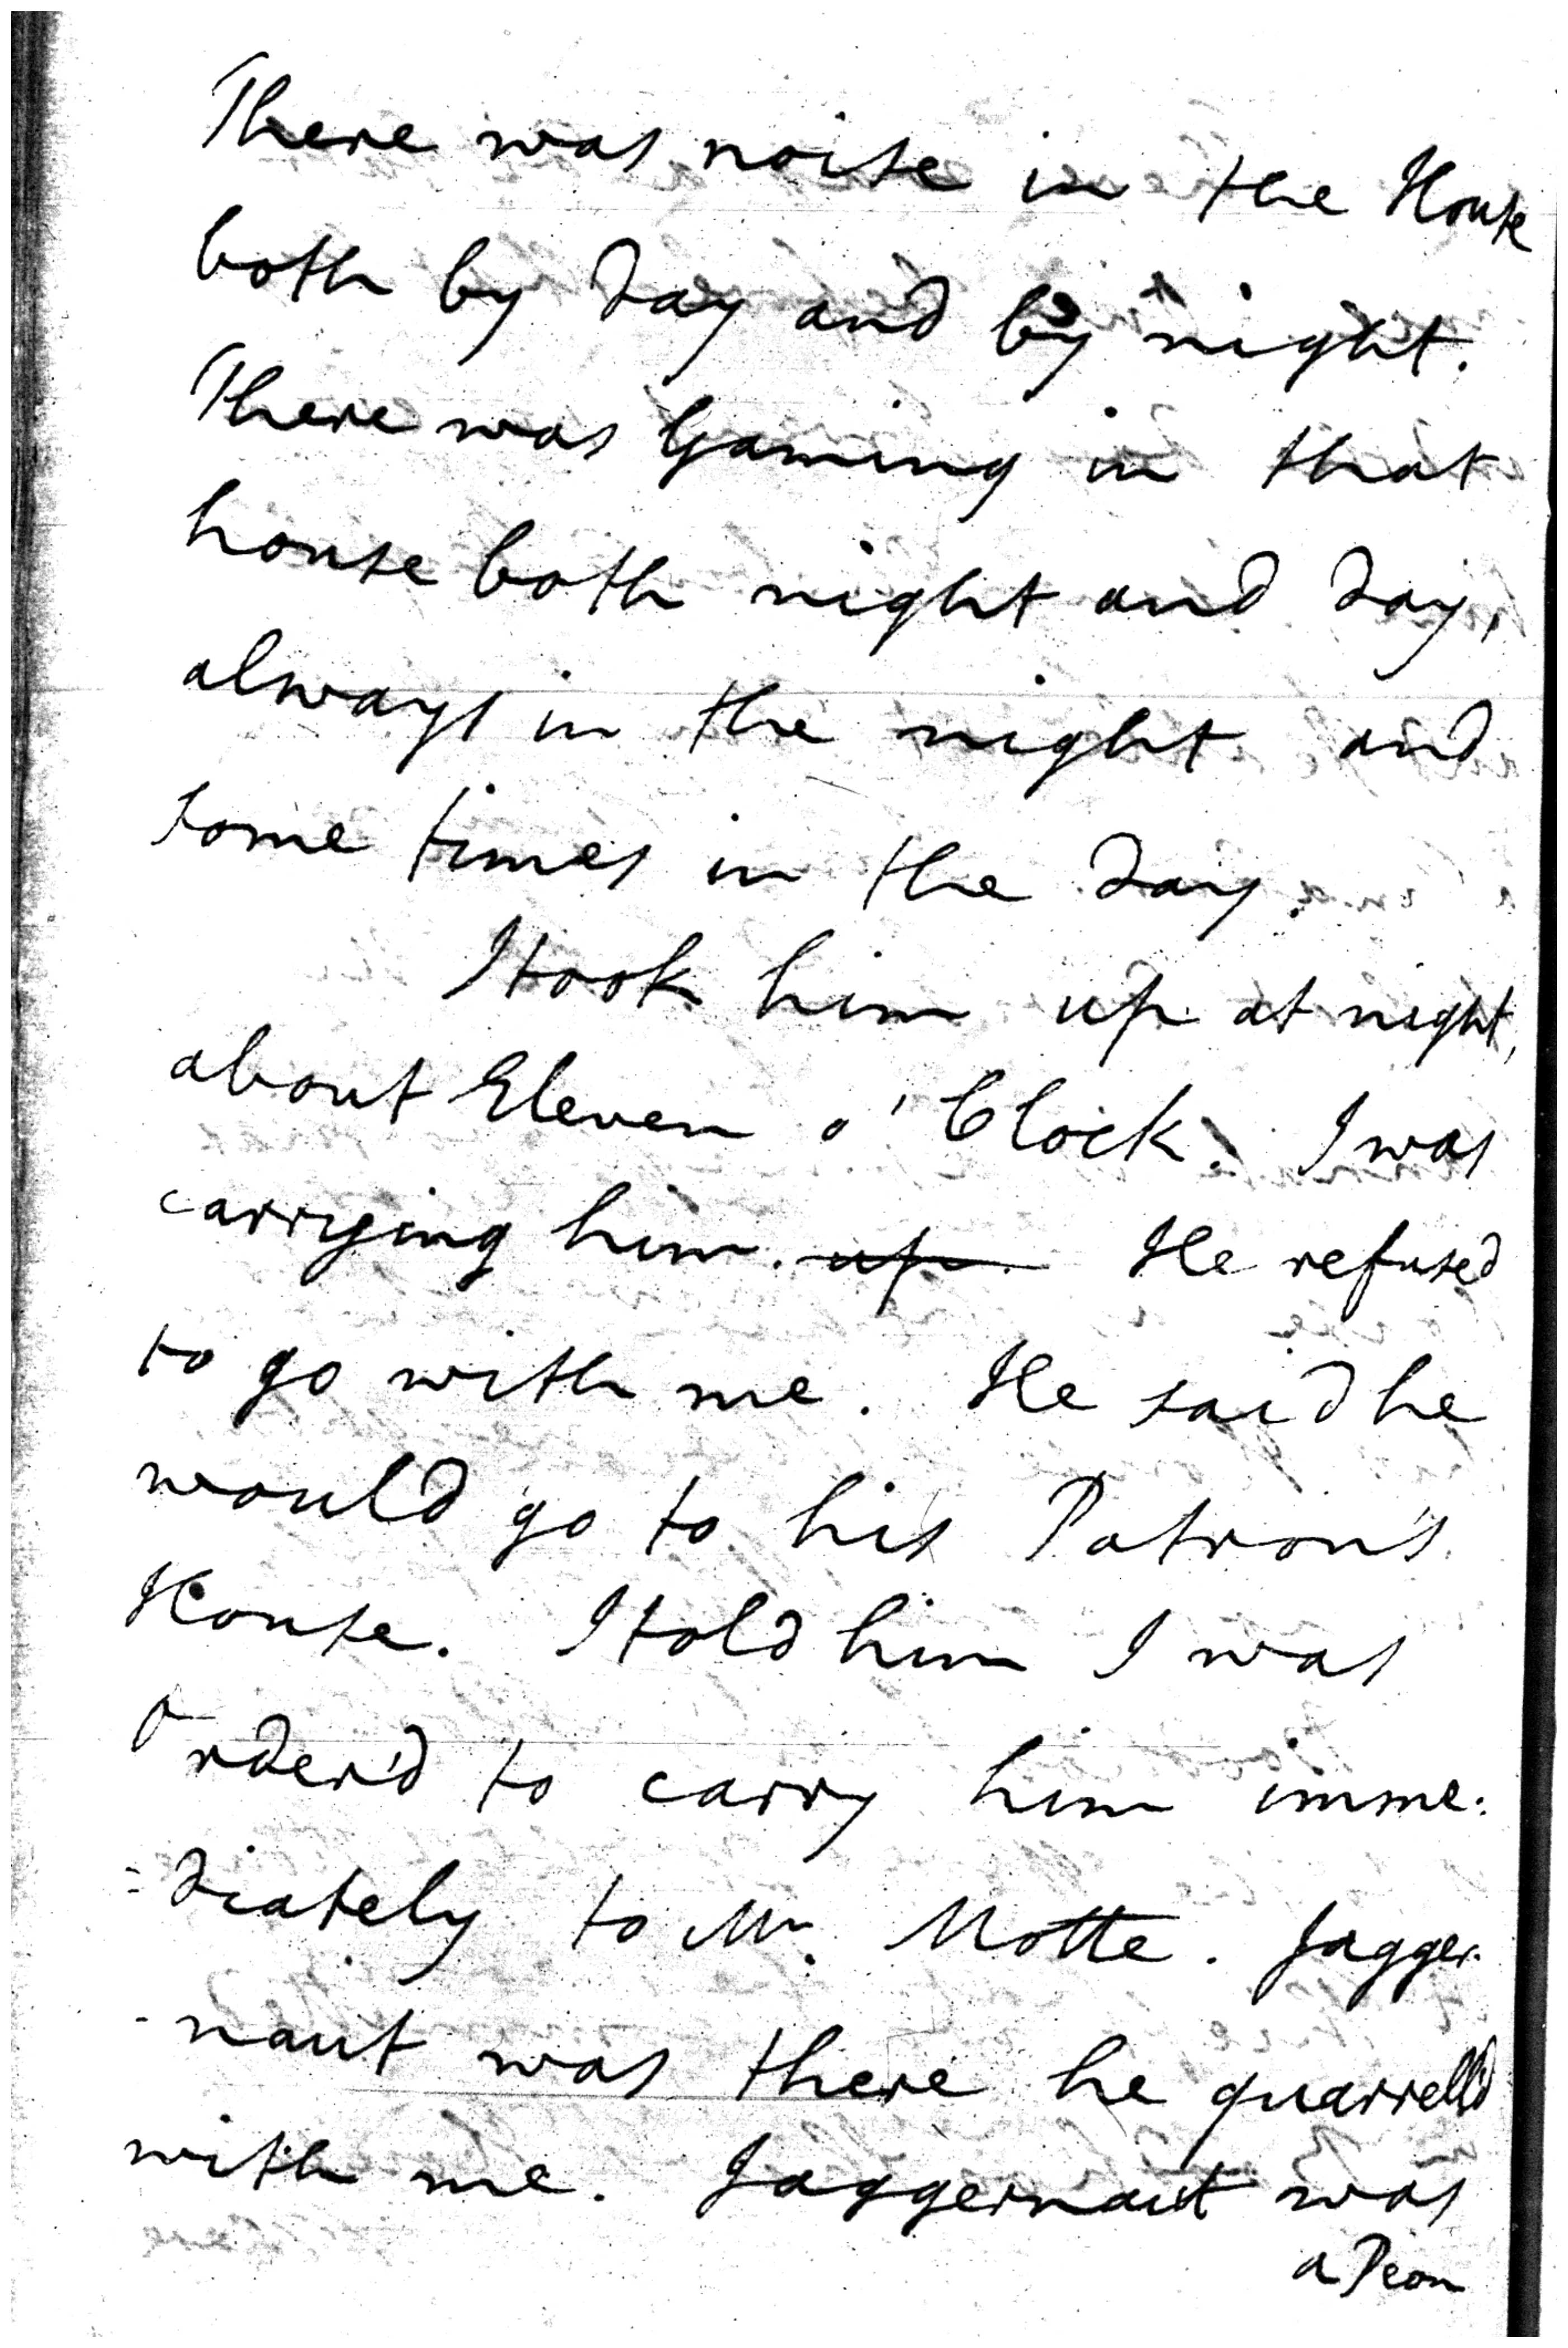 There was noise in the House
both by day and by night.
There was Gaming in that
house both night and day,
always in the night and
some times in the day.
I took him up at night,
about Eleven o' Clock. I was
carrying him. up. He refused
to go with me. He said he
would go to his Patron's
House. I told him I was
order'd to carry him imme:
:diately to Mr. Motte. Jagger-
-naut was there he quarrell'd
with me. Jaggernaut was
a Peon